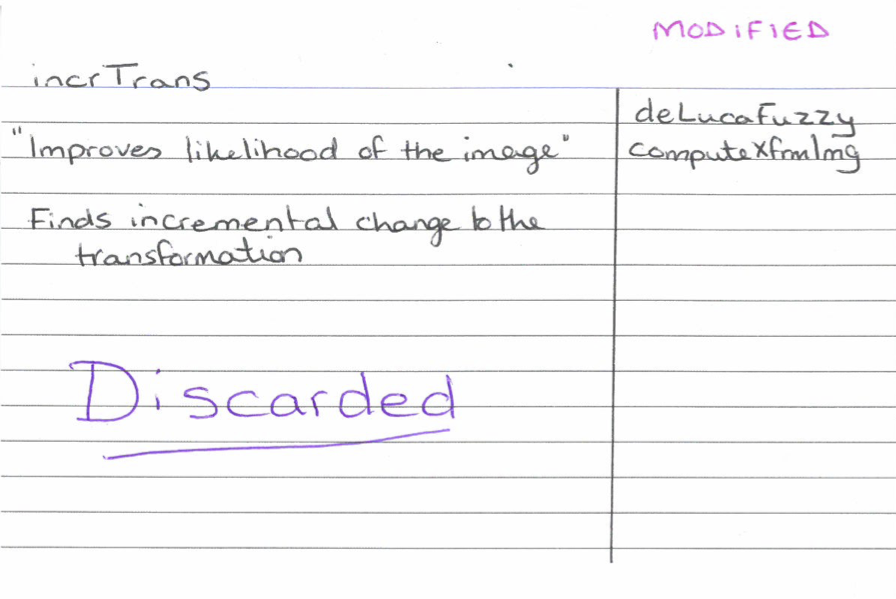 MODIFIED
incrTrans
"Improves likelihood of the image"
Finds incremental change to the
transformation
Discarded
deLucaFuzzy
computeXfrmImg